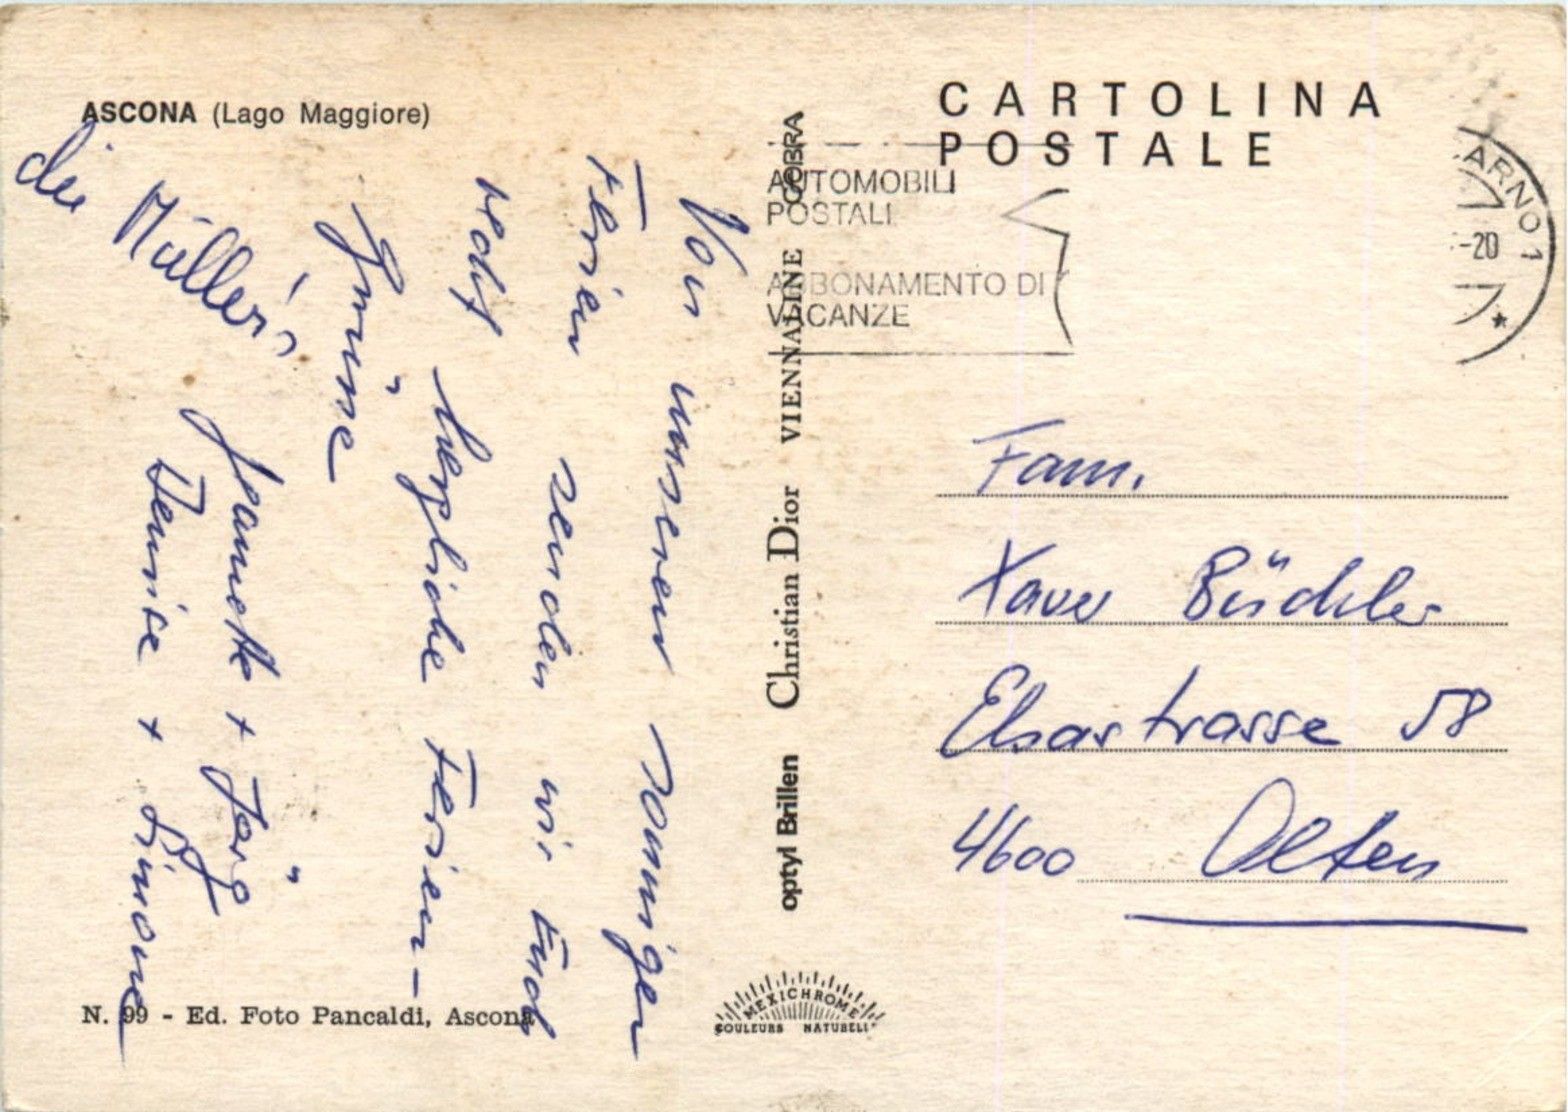 ASCONA (Lago Maggiore)
Von unseren sonnigen
Ferien senden wir Euch
recht herzliche Ferien-
Grüsse
die Müller's
Jeanette + Jörg
Denise + Simone
N. 99 - Ed. Foto Pancaldi, Ascona
optyl Brillen Christian Dior VIENNALINE COBRA
MEXICHROME
COULEURS NATURELL
CARTOLINA
POSTALE
AUTOMOBILI
POSTALI
ABBONAMENTO DI
VACANZE
ARNO 1
-20
Fam.
Xaver Büchler
Elsastrasse 58
4600 Olten